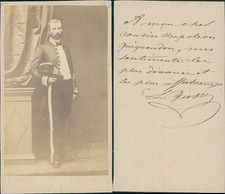 A mon cher
cousin Napoléon
mes
sentiments les
plus dévoués et
les plus affectueux